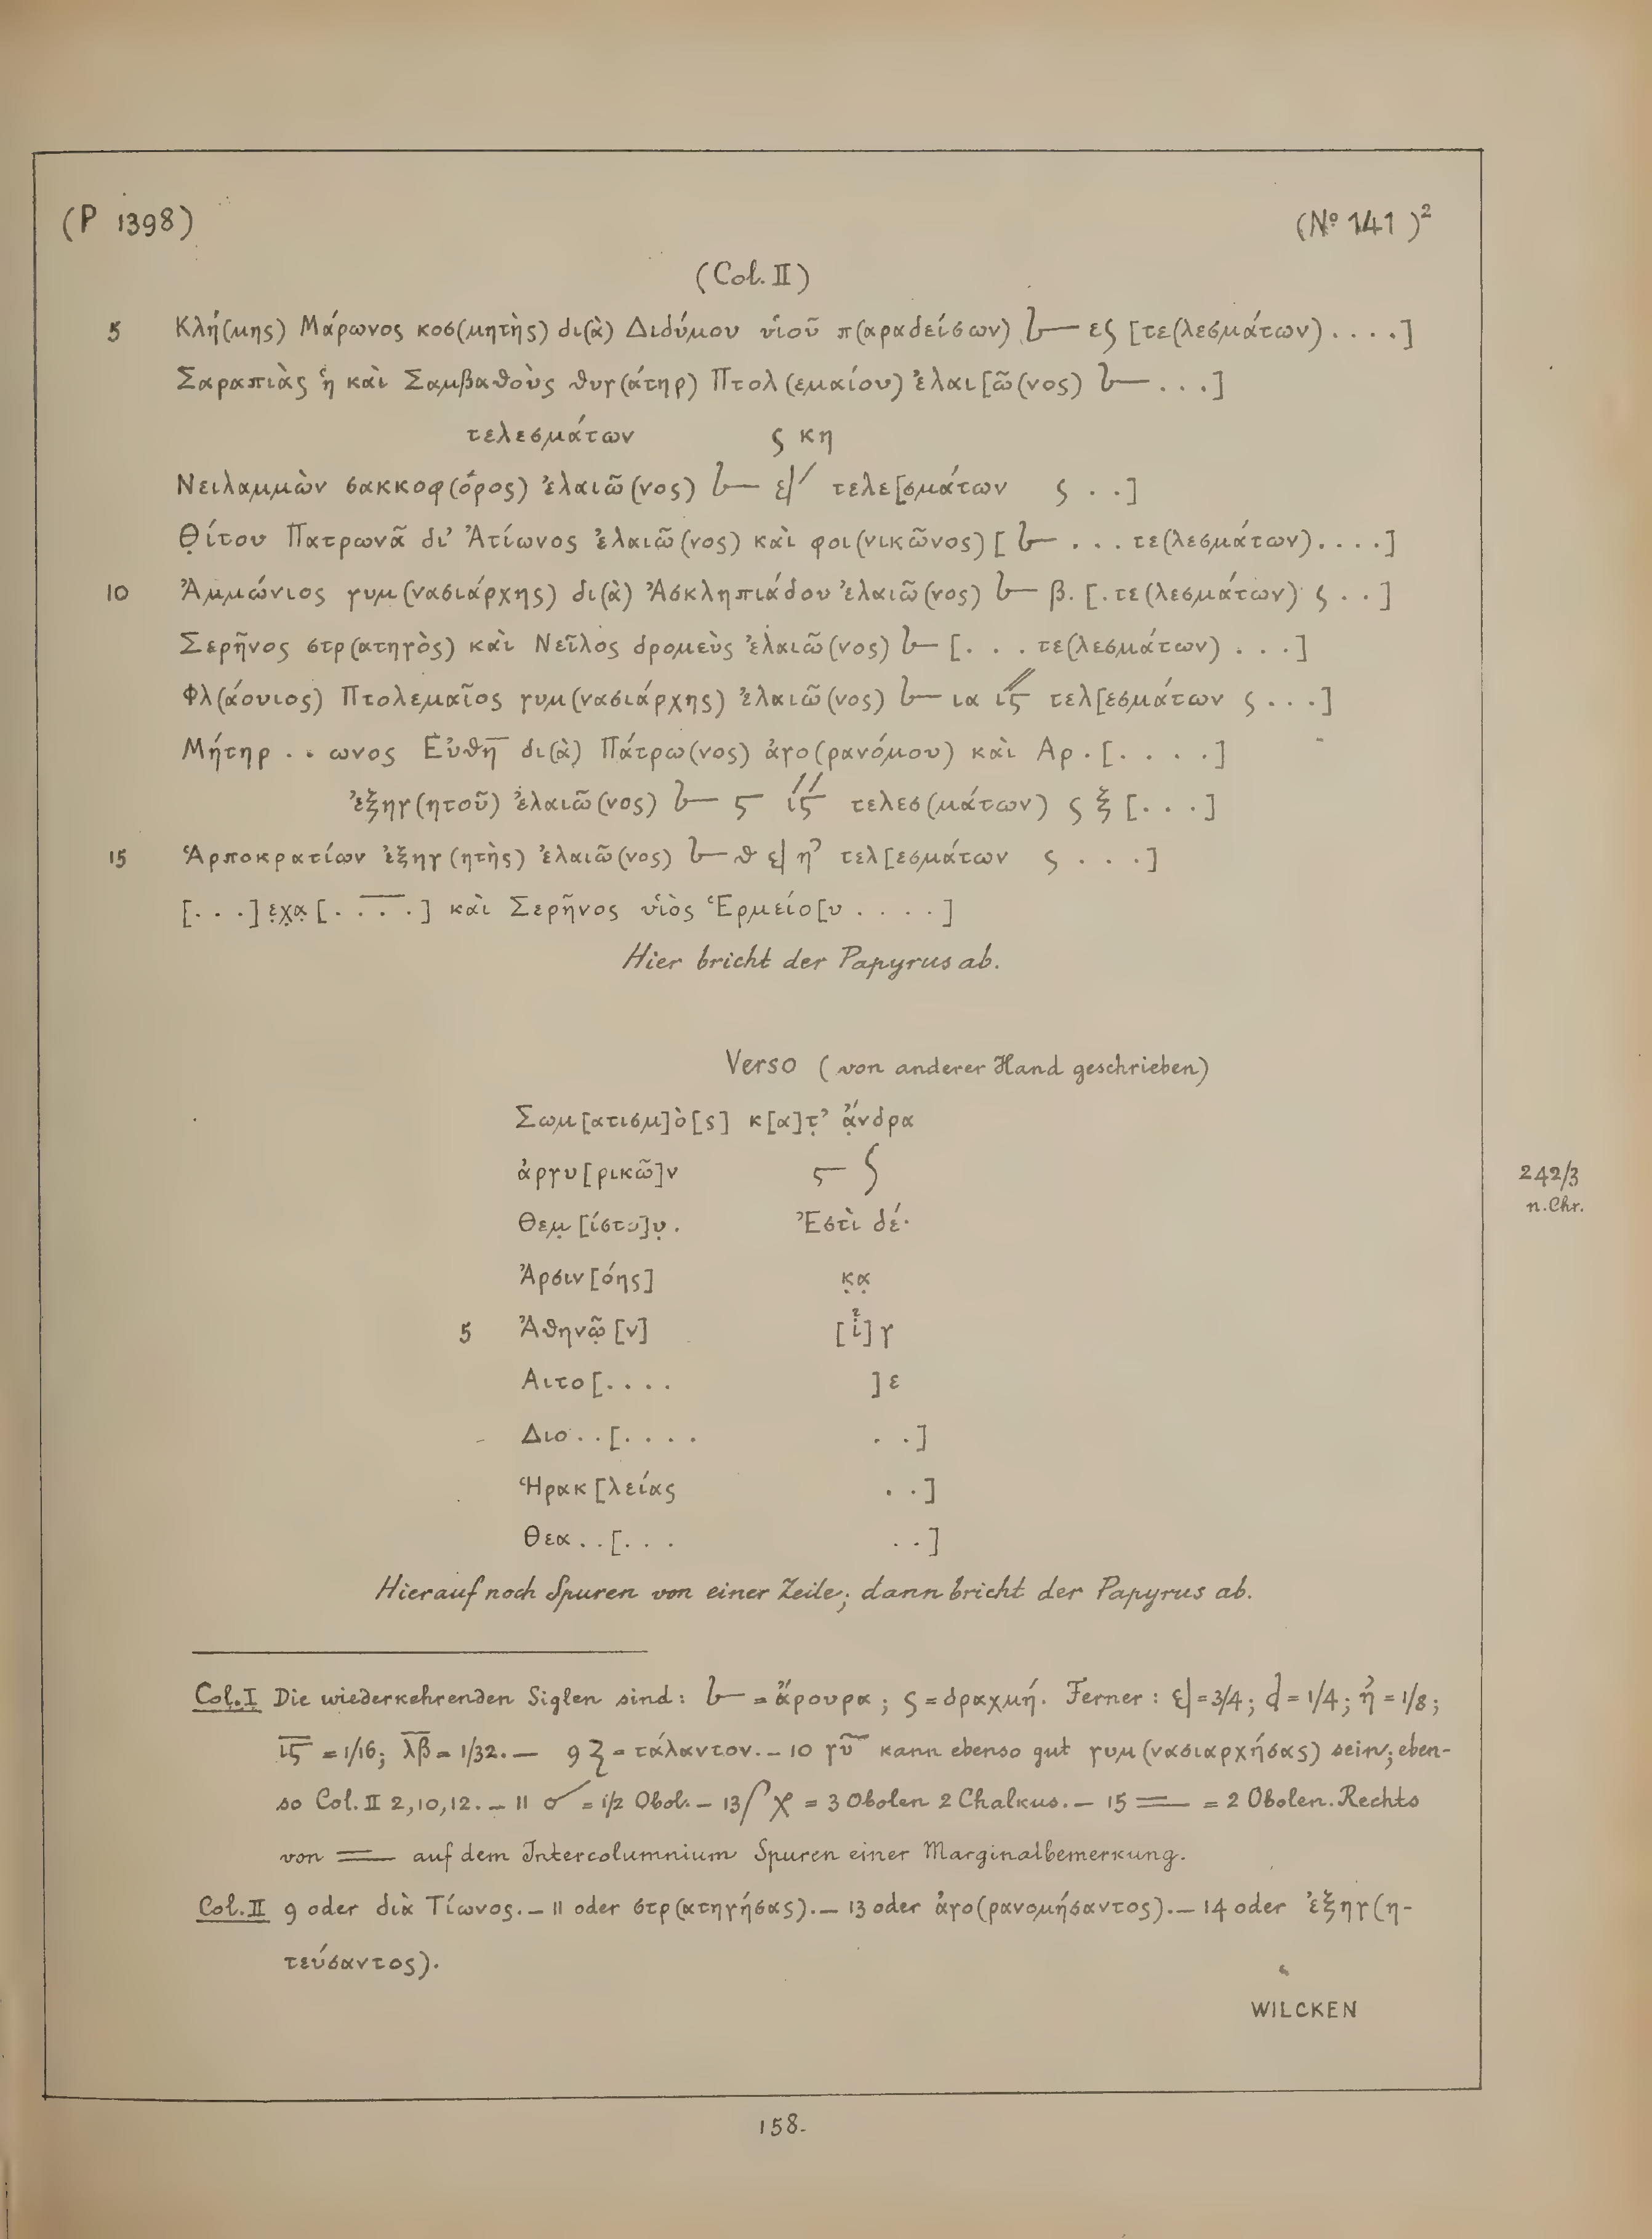 (P 1398)
(No 141)²
(Col. II)
5 Κλή(μης) Μάρωνος κοσ(μητὴς) δι(ὰ) Διδύμου υἱοῦ π(αραδείσων) 𐅵— ες [τε(λεσμάτων) . . . .]
Σαραπιὰς ἡ καὶ Σαμβαθοὺς θυγ(άτηρ) Πτολ(εμαίου) ἐλαι[ῶ(νος) — . . .]
τελεσμάτων ϛ κη
Νειλαμμὼν σακκοφ(όρος) ἐλαιῶ(νος) — ε|´ τελε[σμάτων ϛ . .]
Θ̣ίτου Πατρωνᾶ δι’ Ἀτίωνος ἐλαιῶ(νος) καὶ φοι(νικῶνος) [ — . . . τε(λεσμάτων) . . . .]
10 Ἀμμώνιος γυμ(νασιάρχης) δι(ὰ) Ἀσκληπιάδου ἐλαιῶ(νος) — β. [. τε(λεσμάτων) ϛ . .]
Σερῆνος στρ(ατηγὸς) καὶ Νεῖλος δρομεὺς ἐλαιῶ(νος) — [. . . τε(λεσμάτων) . . .]
Φλ(άουιος) Πτολεμαῖος γυμ(νασιάρχης) ἐλαιῶ(νος) — ια ιϛ´´ τελ[εσμάτων ϛ . . .]
Μήτηρ . . ωνος Εὐθη̅ δι(ὰ) Πάτρω(νος) ἀγο(ρανόμου) καὶ Αρ . [. . . .]
ἐξηγ(ητοῦ) ἐλαιῶ(νος) — ϛ ιϛ´´ τελεσ(μάτων) ϛ ξ [. . .]
15 Ἁρποκρατίων ἐξηγ(ητὴς) ἐλαιῶ(νος) — θ ε| η’ τελ[εσμάτων ϛ . . .]
[. . .] ε̣χ̣α̣ [. . . .] καὶ Σερῆνος υἱὸς Ἑρμείο[υ . . . .]
Hier bricht der Papyrus ab.
Verso (von anderer Hand geschrieben)
Σωμ[ατισμ]ὸ[ς] κ[α]τ̣’ ἄ̣νδρα
ἀργυ[ρικῶ]ν ϛ— ʃ
Θεμ̣[ίστο]υ̣. Ἐστὶ δέ·
Ἀρσιν[όης] κ̣α̣
5 Ἀθηνῶ̣[ν] [ι]γ
Αιτο[. . . . ]ε
Διο . . [. . . . . .]
Ἡρακ[λείας . .]
Θεα . . [. . . . .]
Hierauf noch Spuren von einer Zeile; dann bricht der Papyrus ab.
242/3
n. Chr.
Col. I Die wiederkehrenden Siglen sind: — = ἄρουρα; ϛ = δραχμή. Ferner: ε| = 3/4; d = 1/4; η’ = 1/8;
ι̅ϛ̅ = 1/16; λ̅β̅ = 1/32. — 9 ʒ = τάλαντον. — 10 γῦ kann ebenso gut γυμ(νασιαρχήσας) sein; eben-
so Col. II 2, 10, 12. — 11 σ´ = 1/2 Obol. — 13 ʃ χ = 3 Obolen 2 Chalkus. — 15 = = 2 Obolen. Rechts
von = auf dem Intercolumnium Spuren einer Marginalbemerkung.
Col. II 9 oder διὰ Τίωνος. — 11 oder στρ(ατηγήσας). — 13 oder ἀγο(ρανομήσαντος). — 14 oder ἐξηγ(η-
τεύσαντος).
WILCKEN
158.